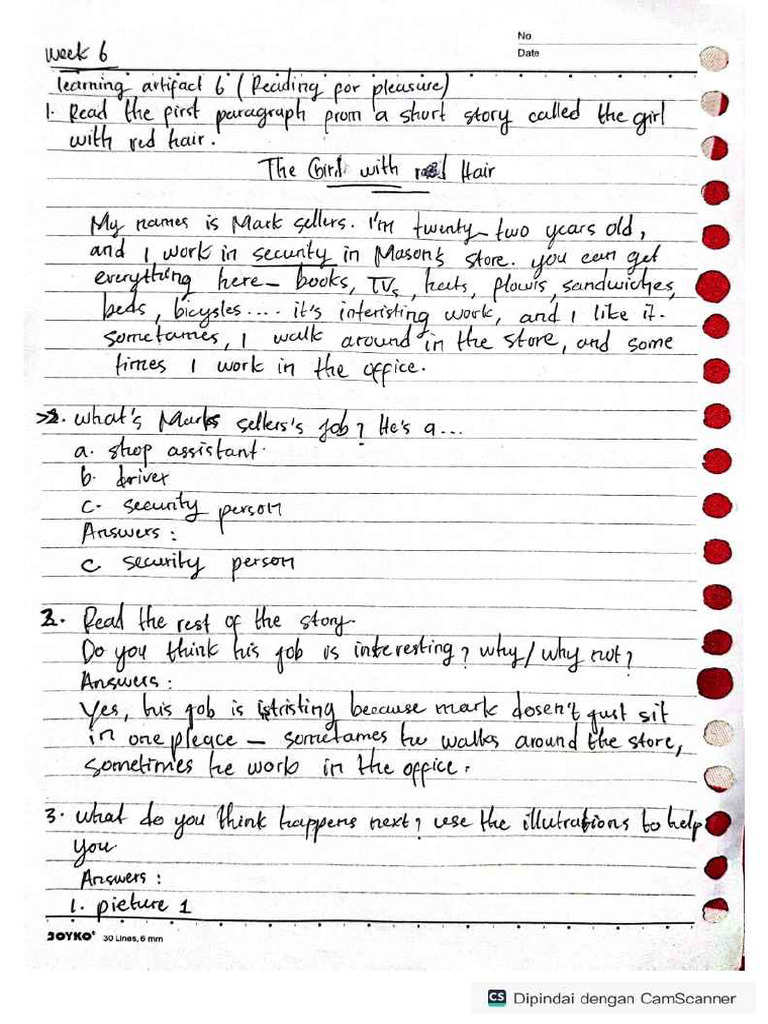 No
Date
Week 6
learning artifact 6 (Reading for pleasure)
1. Read the first paragraph from a short story called the girl
with red hair.
The Girl with red Hair
My names is Mark sellers. I'm twenty-two years old,
and I work in security in Mason's store. you can get
everything here - books, TVs, hats, plowis, sandwiches,
beds, bicysles.... it's interisting work, and I like it.
sometames, I walk around in the store, and some
times I work in the office.
2. what's Marks sellers's job? He's a...
a. shop assistant.
b. driver
c. security person
Answers :
c security person
2. Read the rest of the story.
Do you think his job is interesting? why/why not?
Answers :
Yes, his job is istristing because mark dosen't just sit
in one pleace - sometames he walks around the store,
sometimes he work in the office.
3. what do you think happens next? use the illutrations to help
you.
Answers :
1. picture 1
JOYKO 30 Lines, 6 mm
CS Dipindai dengan CamScanner